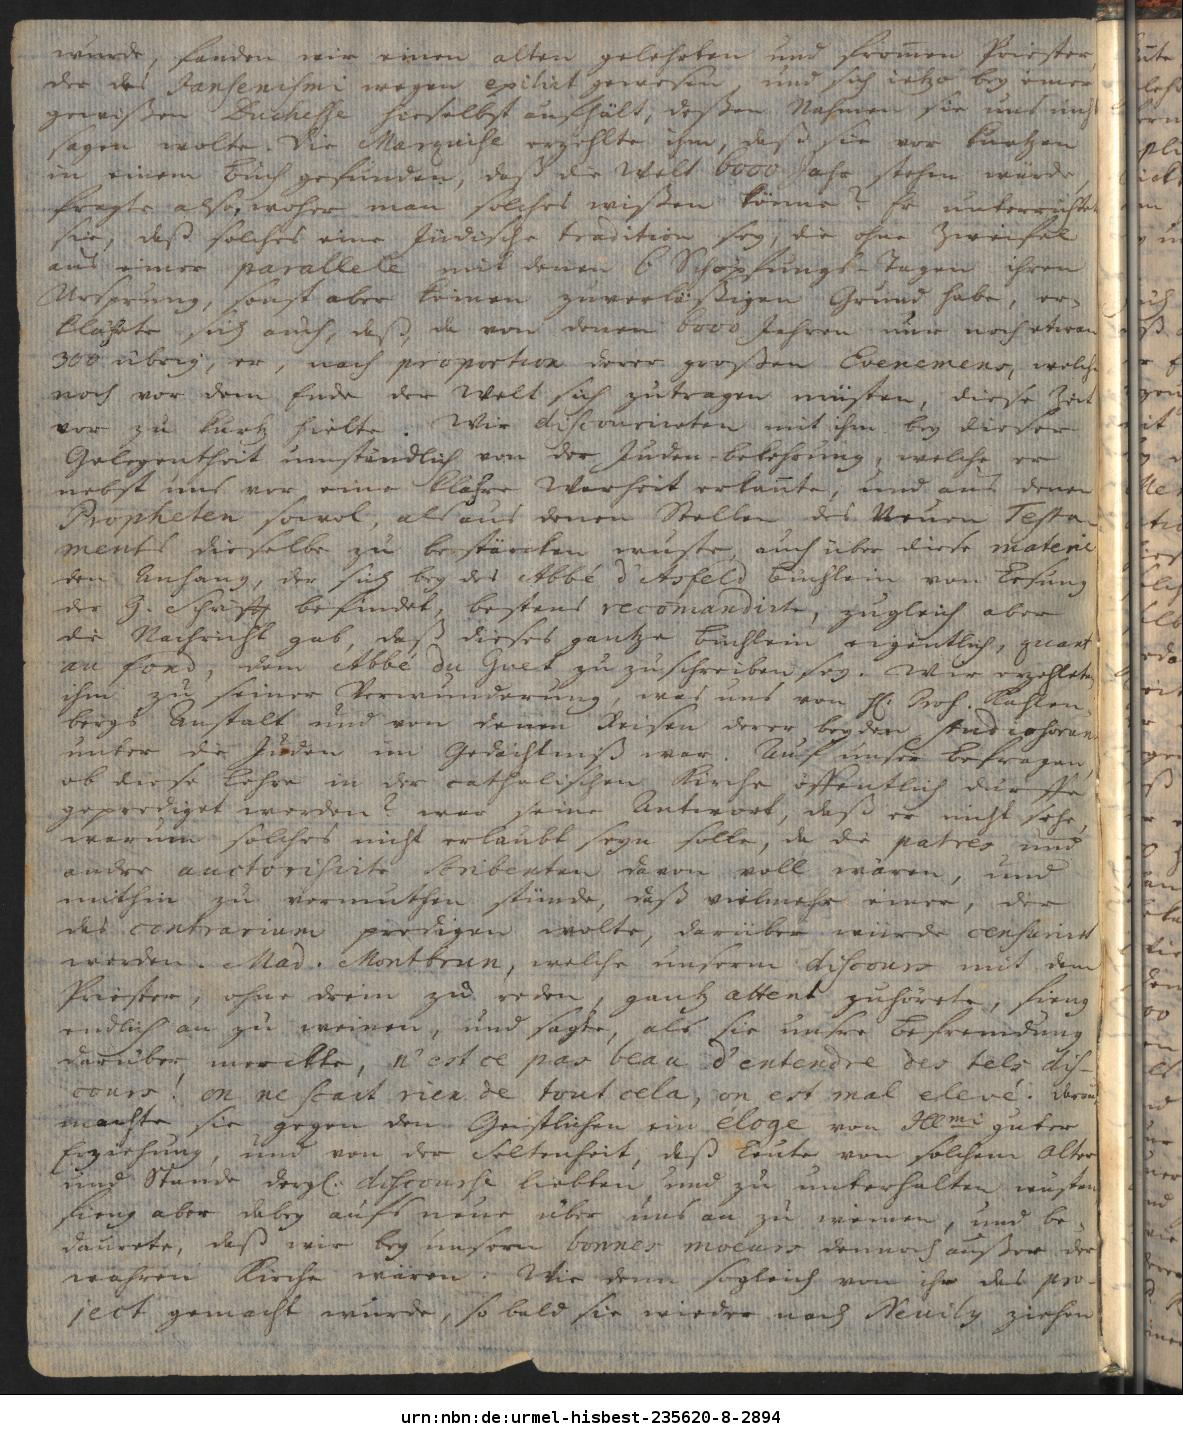 wurde, fanden wir einen alten gelehrten und from̄en Priester,
der des Jansenismi wegen exilirt gewesen, und sich ietzo bey einer
gewißen Duchesse hieselbst aufhält, deßen Nahmen sie uns nicht
sagen wolte. Die Marquise erzehlte ihm, daß sie vor kurtzen
in einem Buch gefunden, daß die Welt 6000 Jahr stehen würde,
fragte also, woher man solches wißen könne? Er unterrichtete
sie, daß solches eine Jüdische tradition sey, die ohne Zweifel
aus einer parallele mit denen 6 Schöpfungs-Tagen ihren
Ursprung, sonst aber keinen zuverläßigen Grund habe, er-
klährte sich auch, daß, da von denen 6000 Jahren nur noch etwan
300 übrig, er, nach proportion derer großen Evenemens, welche
noch vor dem Ende der Welt sich zutragen müsten, diese Zeit
vor zu kurtz hielte. Wir discourirten mit ihm bey dieser
Gelegentheit umständlich von der Juden-bekehrung, welche er
nebst uns vor eine klahre Warheit erkan̄te, und aus denen
Propheten sowol, als aus denen Stellen des Neuen Testa-
ments dieselbe zu bestärcken wuste, auch über diese materie
den Anhang, der sich bey des Abbé d'Asfeld Büchlein von Lesung
der H. Schrifft befindet, bestens recomandirte, zugleich aber
die Nachricht gab, daß dieses gantze Büchlein eigentlich, quant
au fond, dem Abbé du Guet zu zuschreiben sey. Wir erzehlten
ihm zu seiner Verwunderung, was uns von H. Prof. Kallen-
bergs Anstalt und von denen Reisen derer beyden Studiosorum
unter die Juden im Gedächtniß war. Auf unser Befragen,
ob diese Lehre in der catholischen Kirche öffentlich dürffe
geprediget werden? war seine Antwort, daß er nicht sehe,
warum solches nicht erlaubt seyn solle, da die patres und
andre auctorisirte Scribenten davon voll wären, und
mithin zu vermuthen stünde, daß vielmehr einer, der
das contrarium predigen wolte, darüber würde censurirt
werden. Mad. Montbrun, welche unserm discours mit dem
Priester, ohne drein zu reden, gantz attent zuhörete, fieng
endlich an zu weinen, und sagte, als sie unsre Befremdung
darüber merckte, n'est ce pas beau d'entendre des tels dis-
cours! on ne scait rien de tout cela, on est mal elevé. Darauf
machte sie gegen den Geistlichen ein éloge von Illmi guter
Erziehung, und von der Seltenheit, daß Leute von solchem Alter
und Stande dergl. discourse liebten, und zu unterhalten wusten
fieng aber dabey aufs neue über uns an zu weinen, und be-
daurete, daß wir bey unsern bonnes moeurs dennoch außer der
wahren Kirche wären. Wie denn sogleich von ihr das pro-
ject gemacht wurde, so bald sie wieder nach Neuily ziehen
urn:nbn:de:urmel-hisbest-235620-8-2894